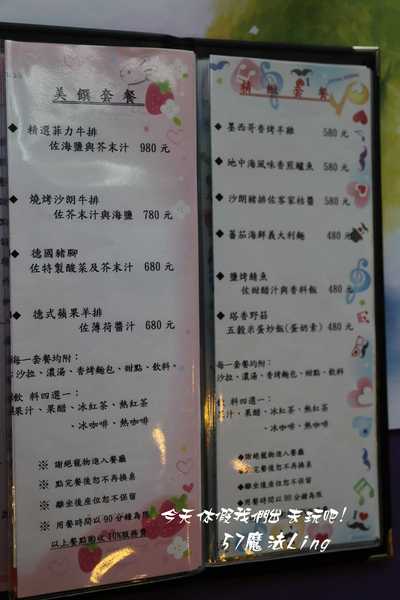 美饌套餐
◆ 精選菲力牛排
佐海鹽與芥末汁 980 元
◆ 燒烤沙朗牛排
佐芥末汁與海鹽 780 元
◆ 德國豬腳
佐特製酸菜及芥末汁 680 元
◆ 德式蘋果羊排
佐薄荷醬汁 680 元
每一套餐均附：
沙拉、濃湯、香烤麵包、甜點、飲料
飲 料四選一：
果汁、果醋、冰紅茶、熱紅茶
、冰咖啡、熱咖啡
※ 謝絕寵物進入餐廳
※ 點完餐後恕不再換桌
※ 離坐後座位恕不保留
※ 用餐時間以 90 分鐘為限
以上餐點酌收 10%服務費
精緻套餐
◆ 墨西哥香烤半雞 580 元
◆ 地中海風味香煎鱸魚 580 元
◆ 沙朗豬排佐客家桔醬 580 元
◆ 蕃茄海鮮義大利麵 480 元
◆ 鹽烤鯖魚
佐甜醋汁與香料飯 480 元
◆ 塔香野菇
五穀米蛋炒飯(蛋奶素) 480 元
每一套餐均附：
沙拉、濃湯、香烤麵包、甜點、飲料
飲 料四選一：
果汁、果醋、冰紅茶、熱紅茶
、冰咖啡、熱咖啡
◆謝絕寵物進入餐廳
完餐後恕不再換桌
離坐後座位恕不保留
用餐時間以 90 分鐘為限
今天休假我們出去玩吧!
57魔法Ling